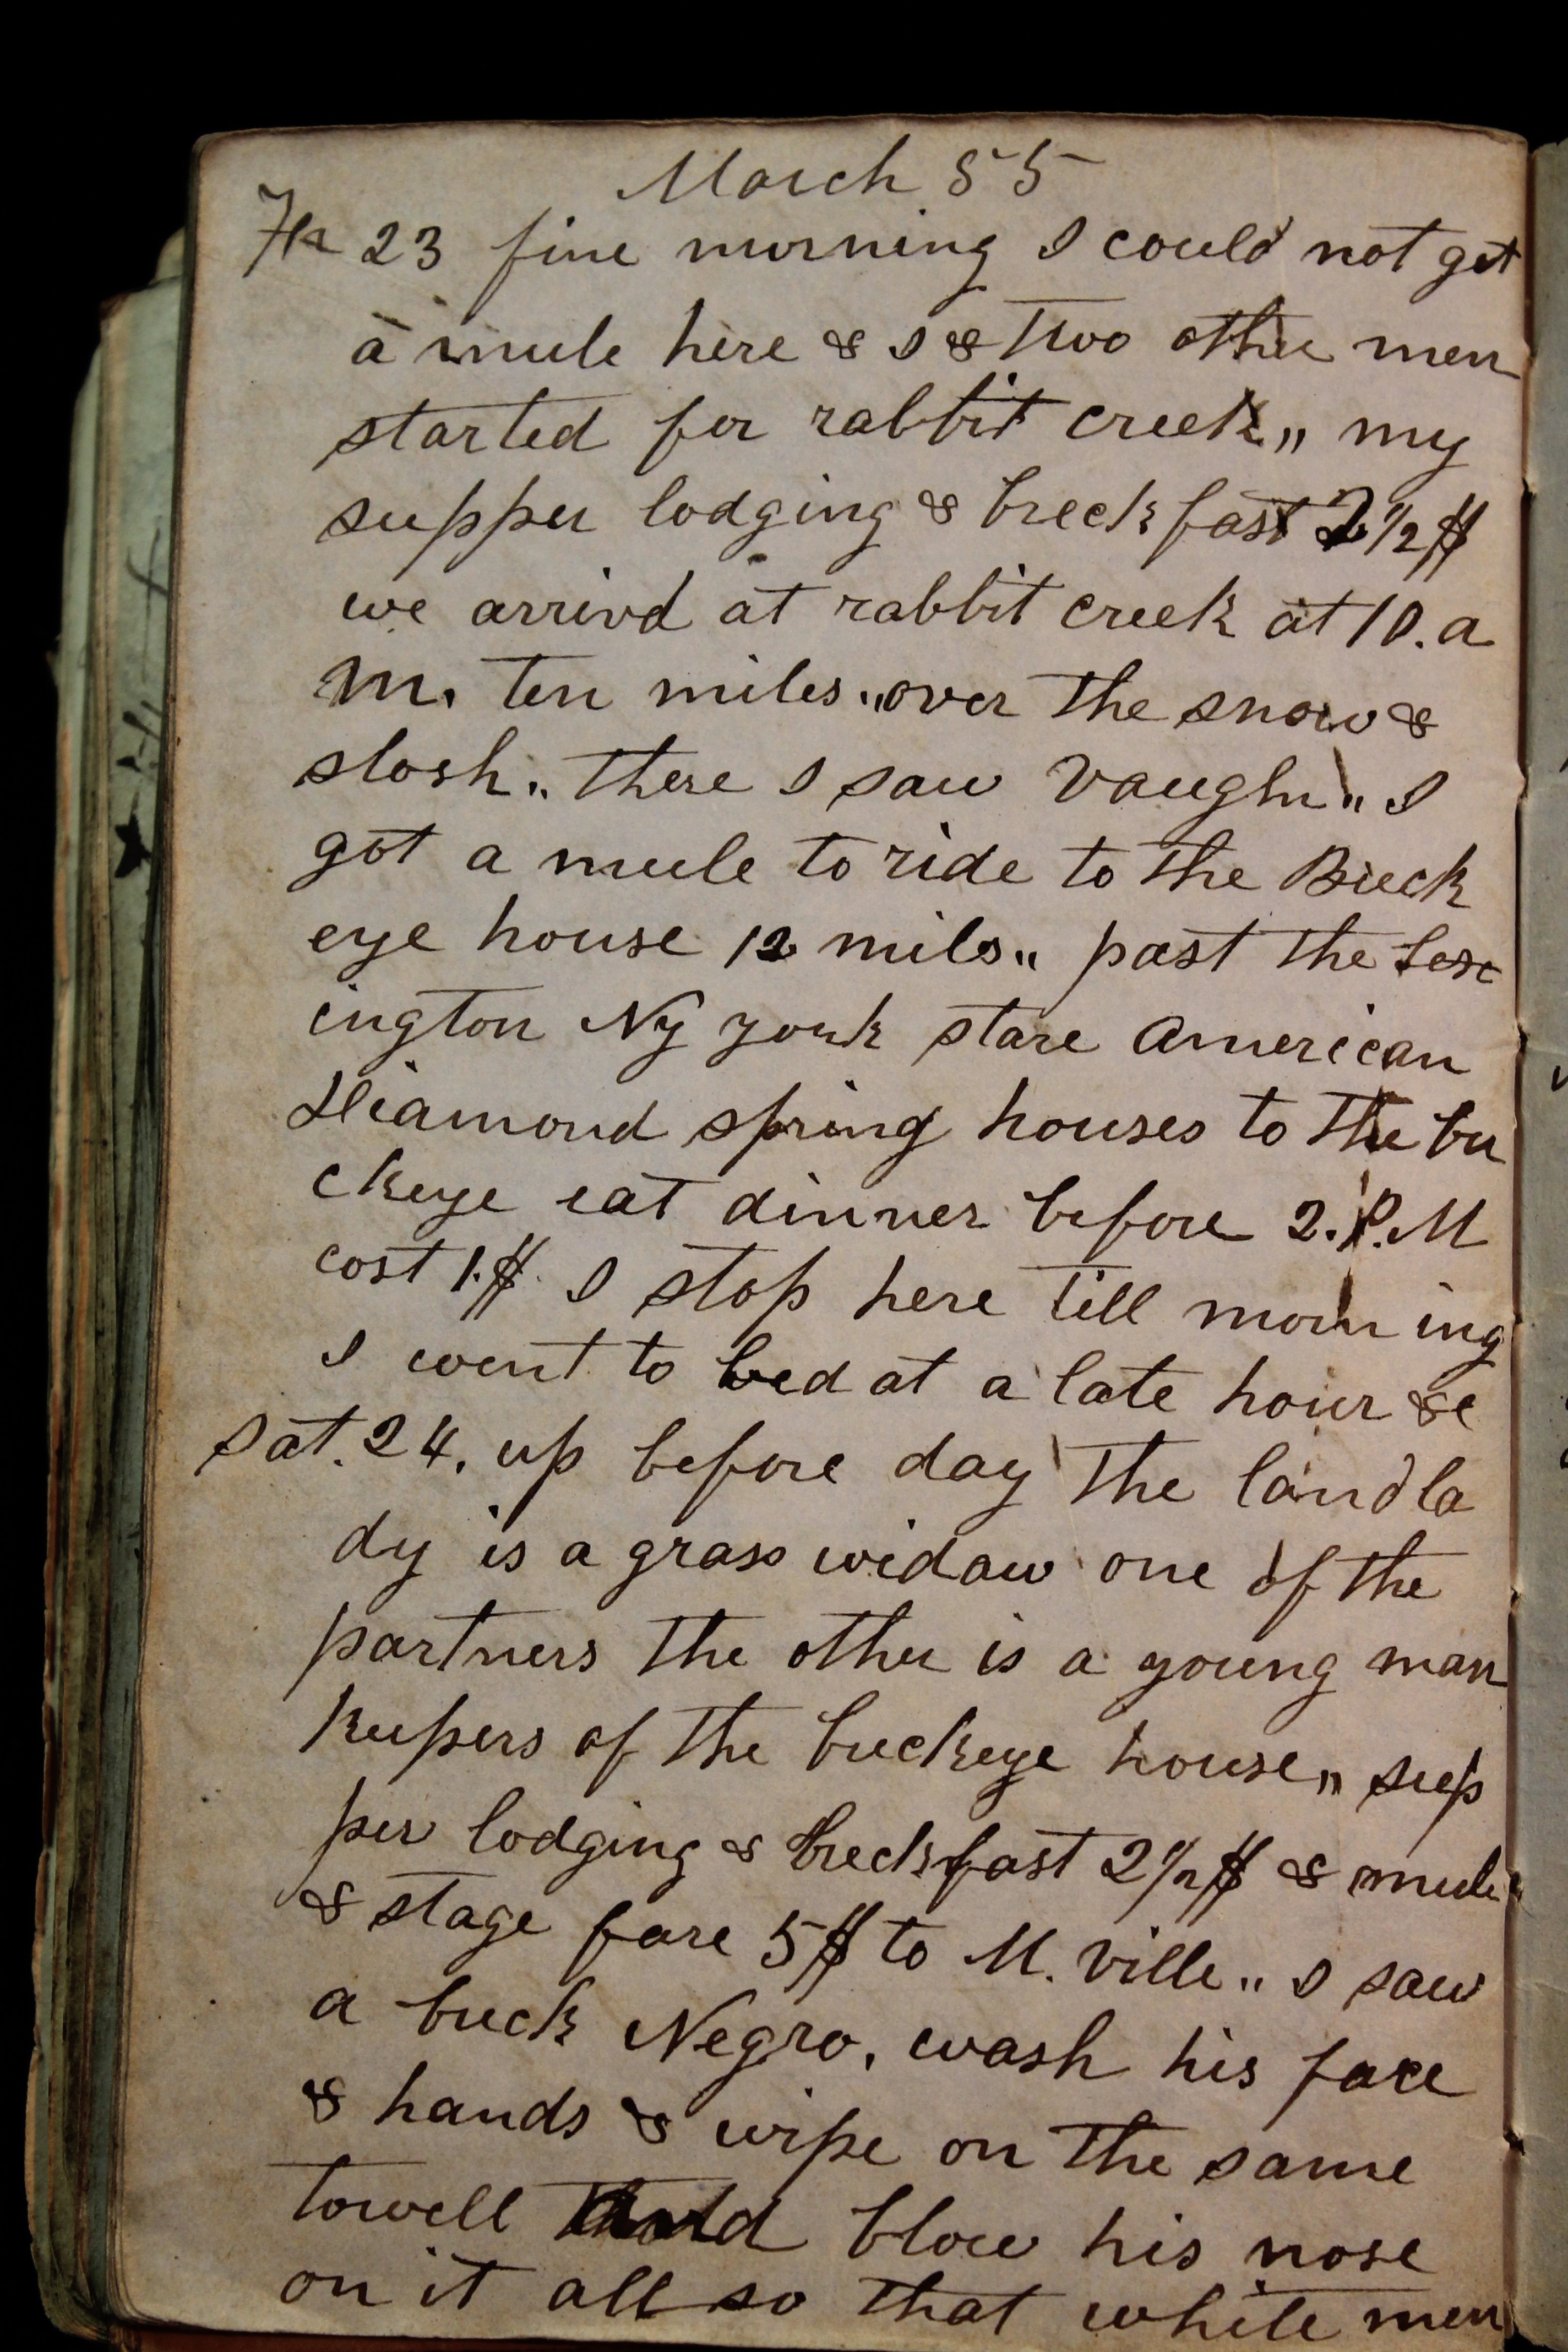 March 55
Fr 23 fine morning I could not get
a mule here & I & two other men
started for rabbit creek,, my
supper lodging & breckfast 2 1/2 $
we arrivd at rabbit creek at 10. a
m. ten miles.,,over the snow &
slosh.,, there I saw Vaughn,, I
got a mule to ride to the Buck
eye house 12 mils,, past the Lex
ington Ny york stare American
Diamond spring houses to the bu
ckeye eat dinner before 2. P.M
cost 1.$ I stop here till morning
I went to bed at a late hour &c
Sat. 24. up before day the landla
dy is a grass widow one of the
partners the other is a young man
keepers of the buckeye house,, sup
per lodging & breckfast 2 1/2 $ & mule
& stage fare 5$ to M. Ville.,, I saw
a buck Negro. wash his face
& hands & wipe on the same
towell blow his nose
on it all so that white men